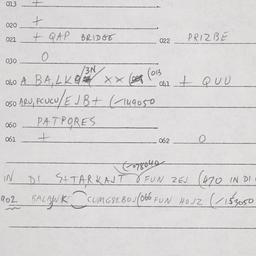 013 +
020 +
021 + QAP BRIDGE 022 PRIZBE
030 0
040 A BA, LK /3N XX (013 061 + QUU
050 ARU, FCUCU/EJB+ (-149050
060 PATPORES
061 + 062 0
(-078040
IN DI S+TARKAJT FUN ZEJ (470 IN DI
902 BALBWK CUMGSRBOJ (066 FUN HOJZ (-153050